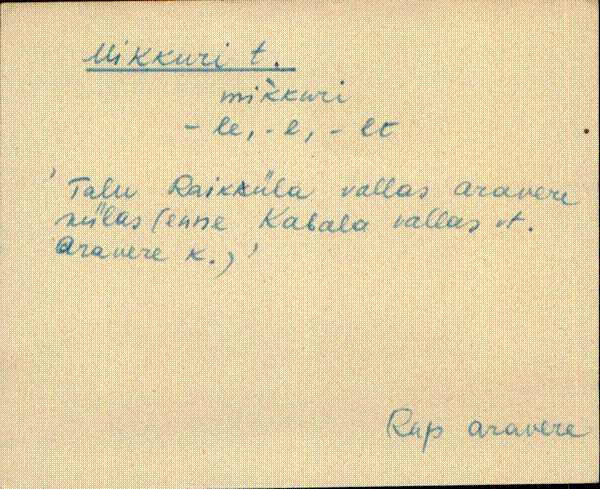 Mikkuri t.
mìkkuri
- le, - l, - lt
'Talu Raikküla vallas Aravere
külas (enne Kabala vallas vt.
Aravere k.)'
Rap Aravere